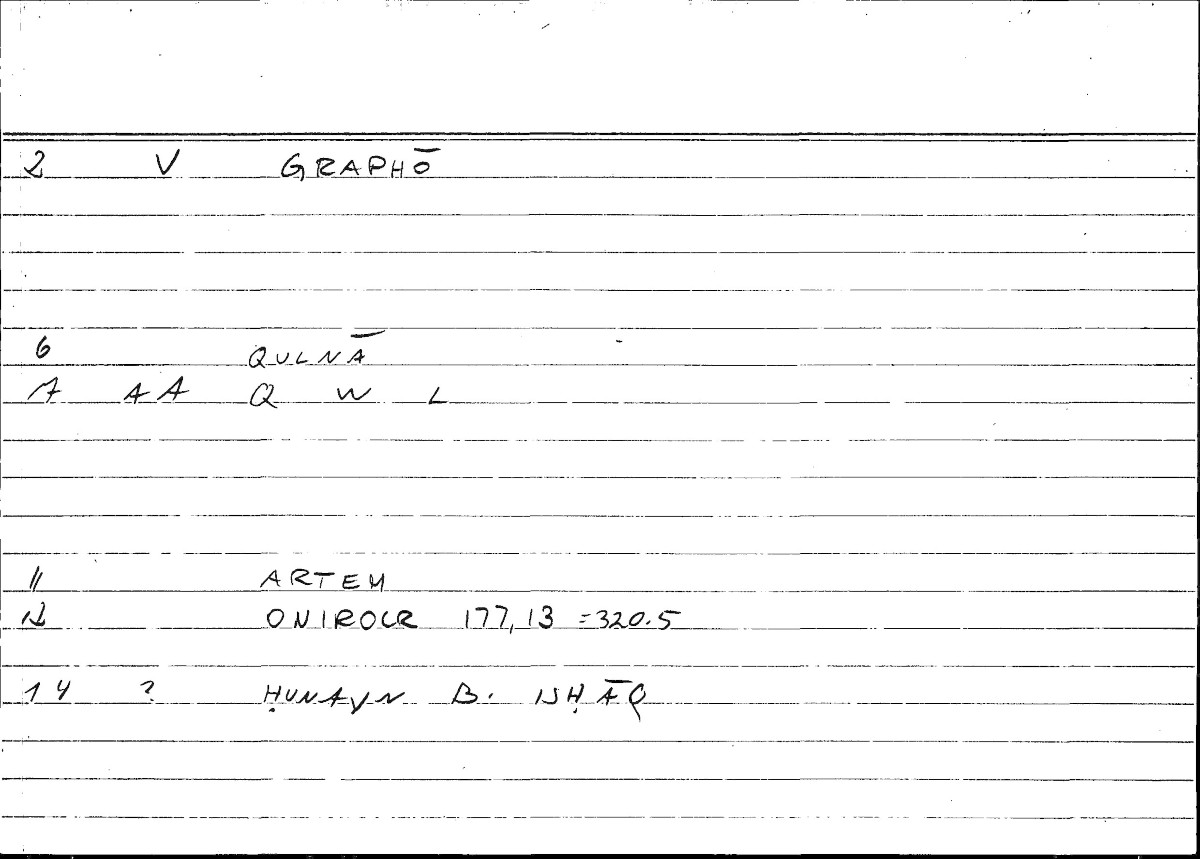 2 V GRAPHŌ
6 QULNĀ
7 AA Q W L
11 ARTEM
12 ONIROCR 177,13 =320.5
14 ? ḤUNAYN B. ISḤĀQ